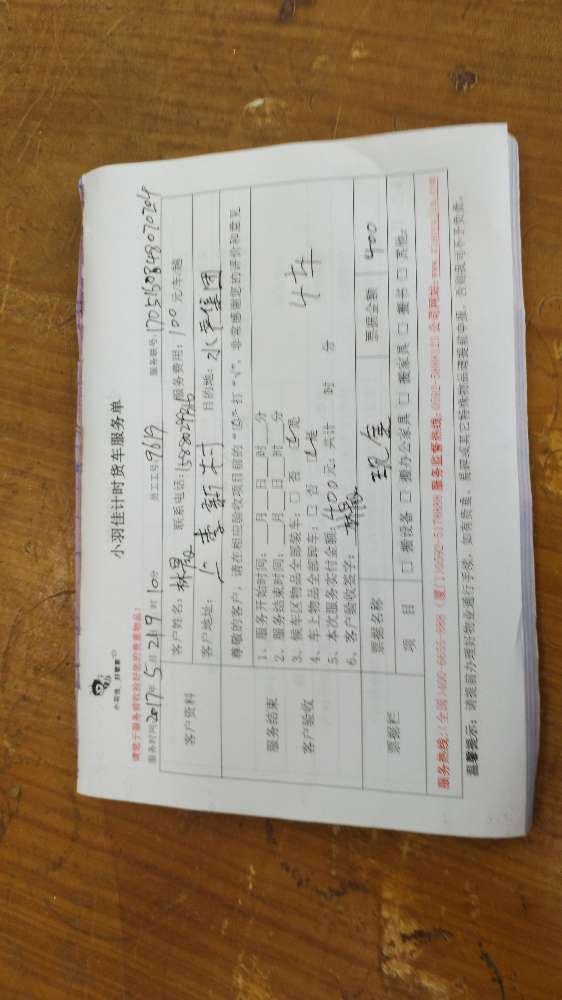 小羽佳计时货车服务单
小羽佳，好管家
请您于服务前收拾好您的贵重物品！
服务时间2017年5月21日9时10分 员工工号9619 服务联号:170516084807020
客户资料
客户姓名: 林 联系电话: 服务费用: 100元/车/趟
客户地址: 李新村 目的地: 水 集团
尊敬的客户，请在相应验收项目前的“□”打“√”，非常感谢您的评价和意见
服务结束
客户验收
1、服务开始时间: 月 日 时 分
2、服务结束时间: 月 日 时 分
3、候车区物品全部装车: □ 否 ☑是
4、车上物品全部卸车: □ 否 ☑是 4车
5、本次服务实付金额: 400元; 共计 时 分
6、客户验收签字: 林
票据栏
票据名称 现金 票据金额 400
项 目 □ 搬设备 □ 搬办公家具 □ 搬家具 □ 搬书 □ 其他:
服务热线:(全国)400-6655-888 (厦门)0592-5178888 服务监督热线:0592-5888123 公司网站:
温馨提示: 请提前办理好物业通行手续，如有贵重、易碎或其它特殊物品请提前申报，否则我司不予负责。